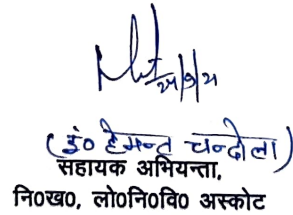 (इं० हेमन्त चन्दोला)
सहायक अभियन्ता,
नि०ख०, लो०नि०वि० अस्कोट